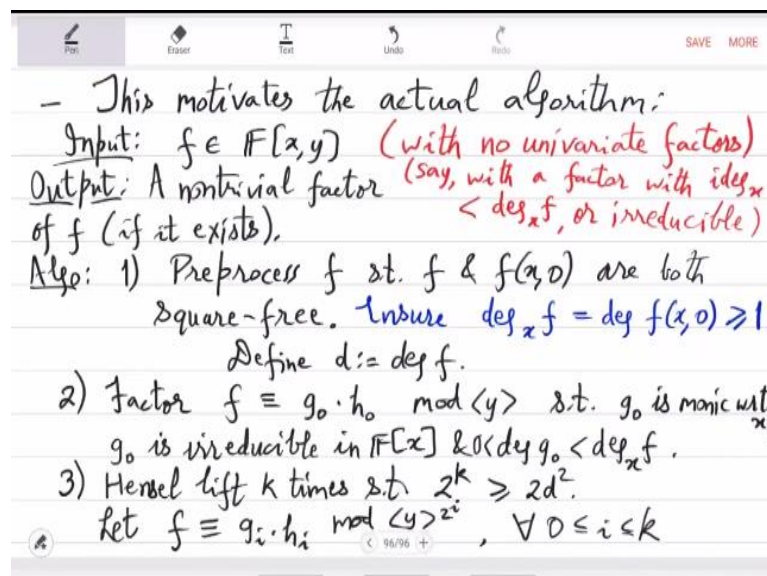 Pen Eraser Text Undo Redo SAVE MORE
- This motivates the actual algorithm:
Input: f ∈ F[x,y] (with no univariate factors)
Output: A nontrivial factor (say, with a factor with ideg_x
of f (if it exists). < deg_x f, or irreducible)
Algo: 1) Preprocess f st. f & f(x,0) are both
square-free. Ensure deg_x f = deg f(x,0) ⩾ 1
Define d := deg f.
2) Factor f ≡ g₀·h₀ mod <y> s.t. g₀ is monic wrt x
g₀ is irreducible in F[x] & 0<deg g₀ < deg_x f.
3) Hensel lift k times s.t. 2^k ⩾ 2d².
Let f ≡ g_i·h_i mod <y>^{2^i}, ∀ 0 ≤ i ≤ k
< 96/96 +